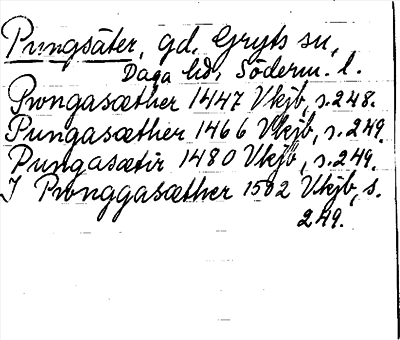 Pungsäter, gd. Gryts sn,
Daga hd, Söderm. l.
Pwngasæther 1447 Vkjb, s. 248.
Pungasæther 1466 Vkjb, s. 249.
Pungasætir 1480 Vkjb, s. 249.
J Pwnggasæther 1502 Vkjb, s.
249.